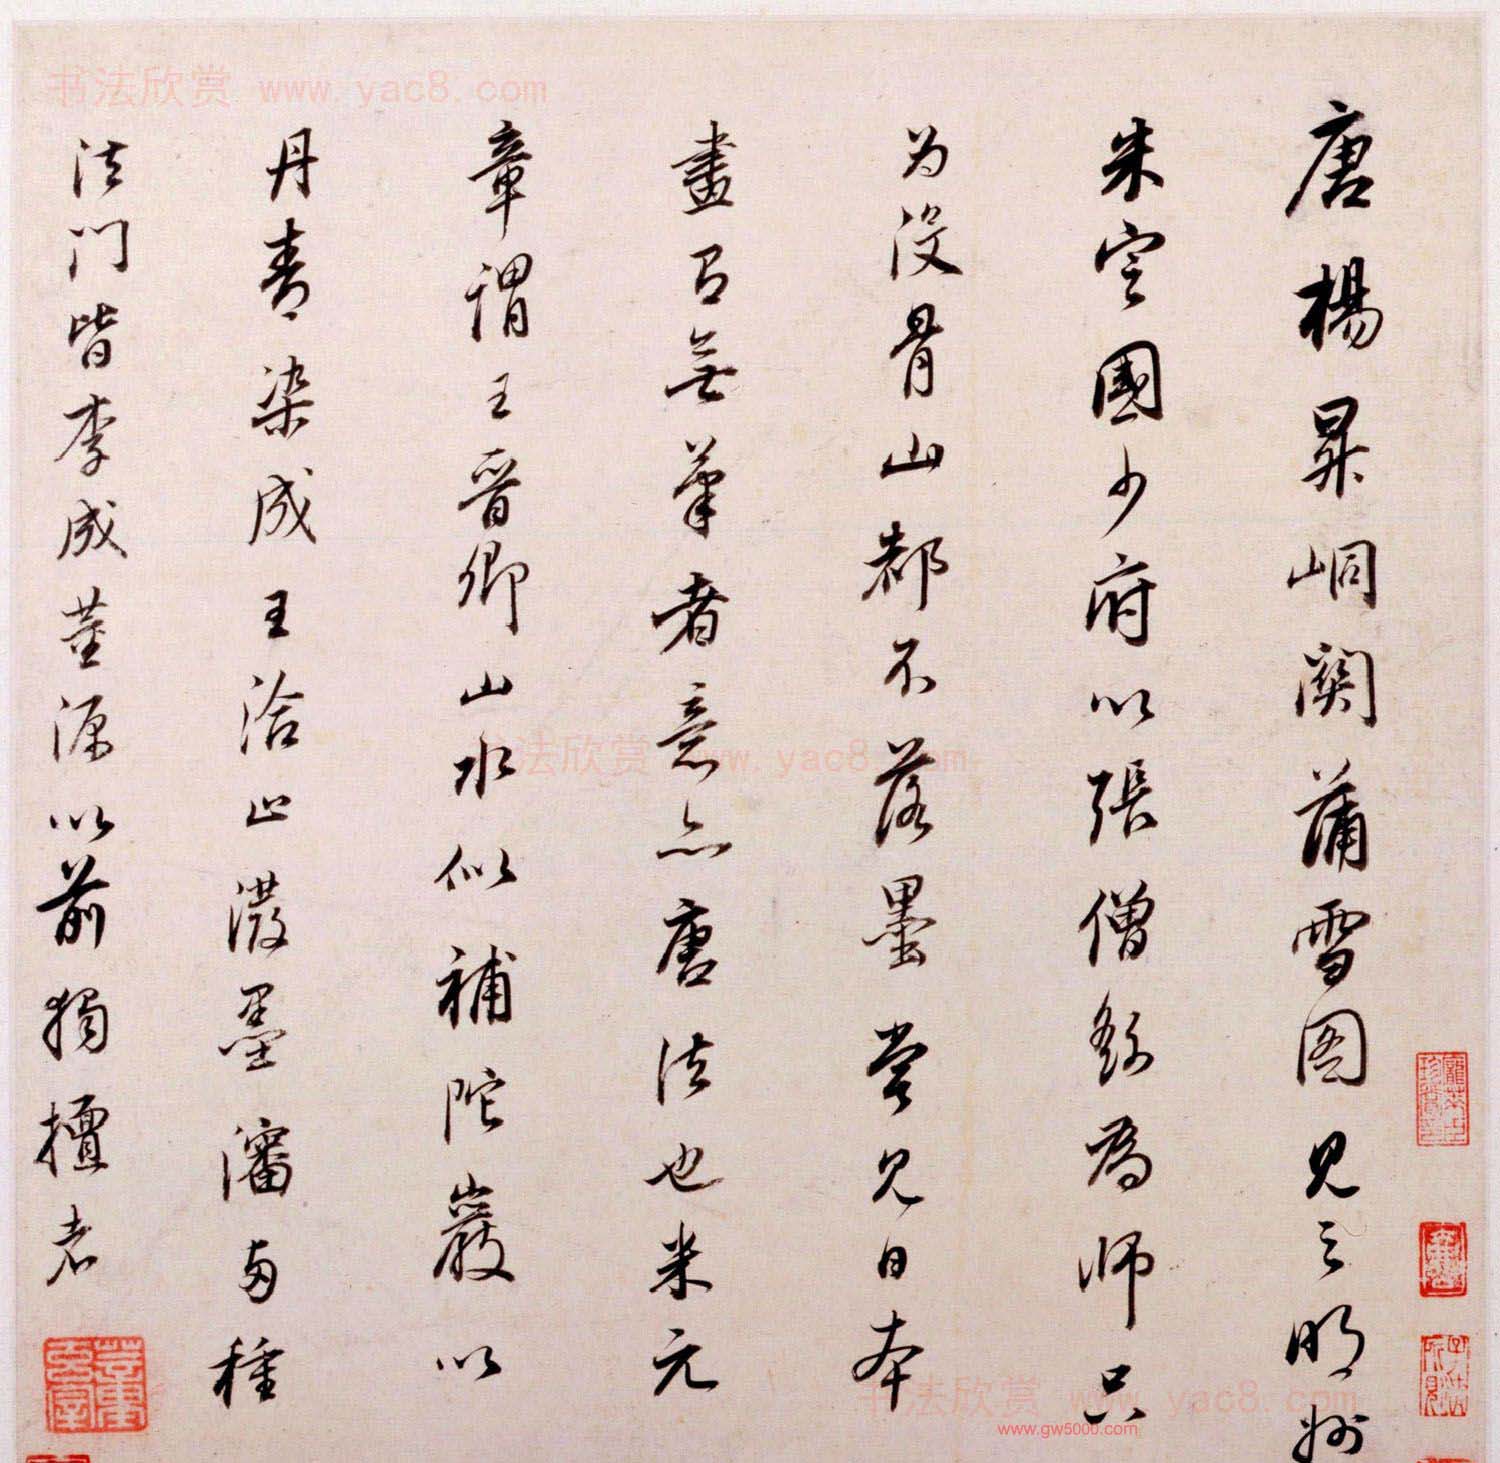 唐楊昇峒関蒲雪图见之明州
朱定國少府以張僧繇為师只
为没骨山都不落墨嘗见日本
畫有无筆者意亦唐法也米元
章謂王晉卿山水似補陀巖以
丹青染成王洽止潑墨瀋两種
法门皆李成董源以前獨擅者
书法欣赏 www.yac8.com
书法欣赏 www.yac8.com
书法欣赏 www.yac8.com
www.gw5000.com